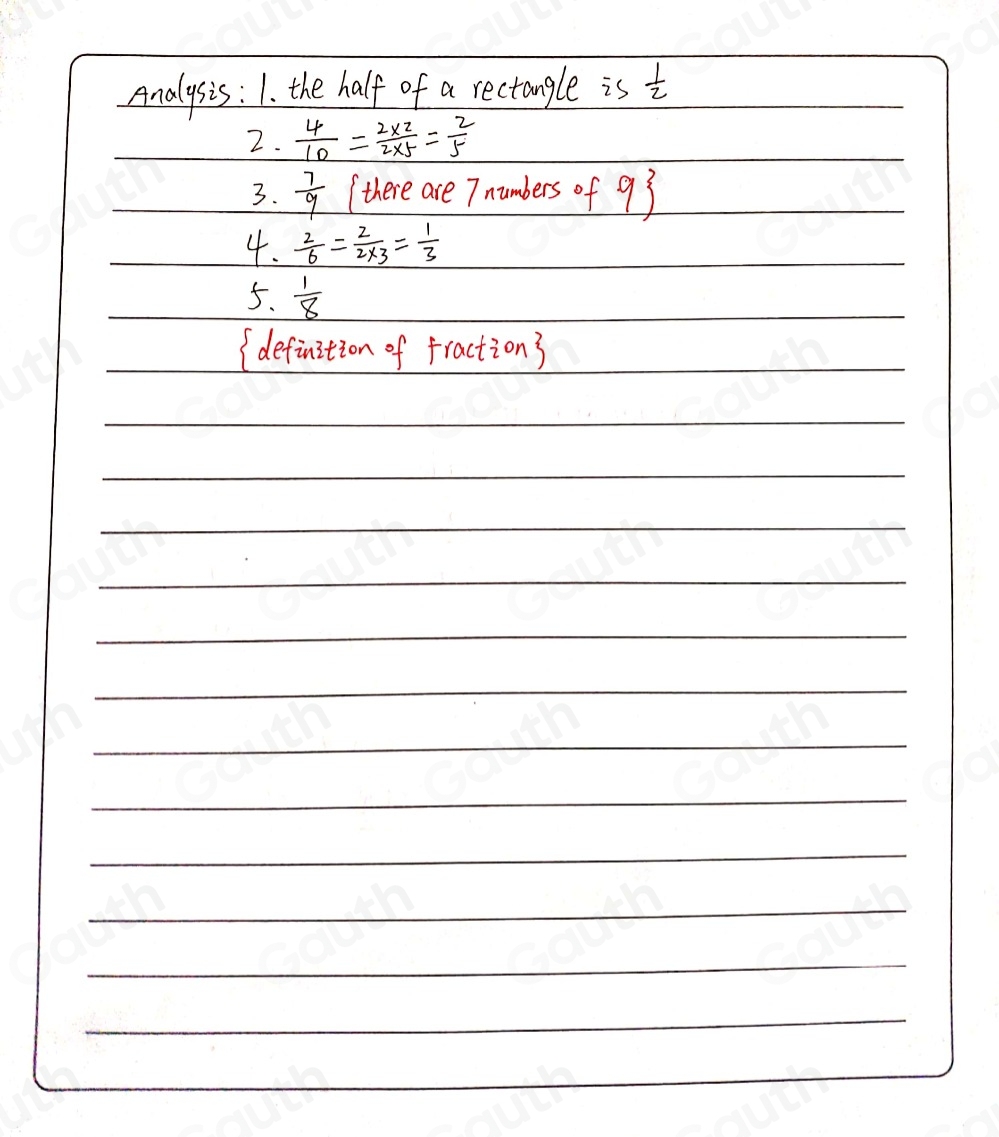 Analysis: 1. the half of a rectangle is 1/2
2. 4/10 = 2×2/2×5 = 2/5
3. 7/9 {there are 7 numbers of 9}
4. 2/6 = 2/2×3 = 1/3
5. 1/8
{definition of fraction}
Gauth